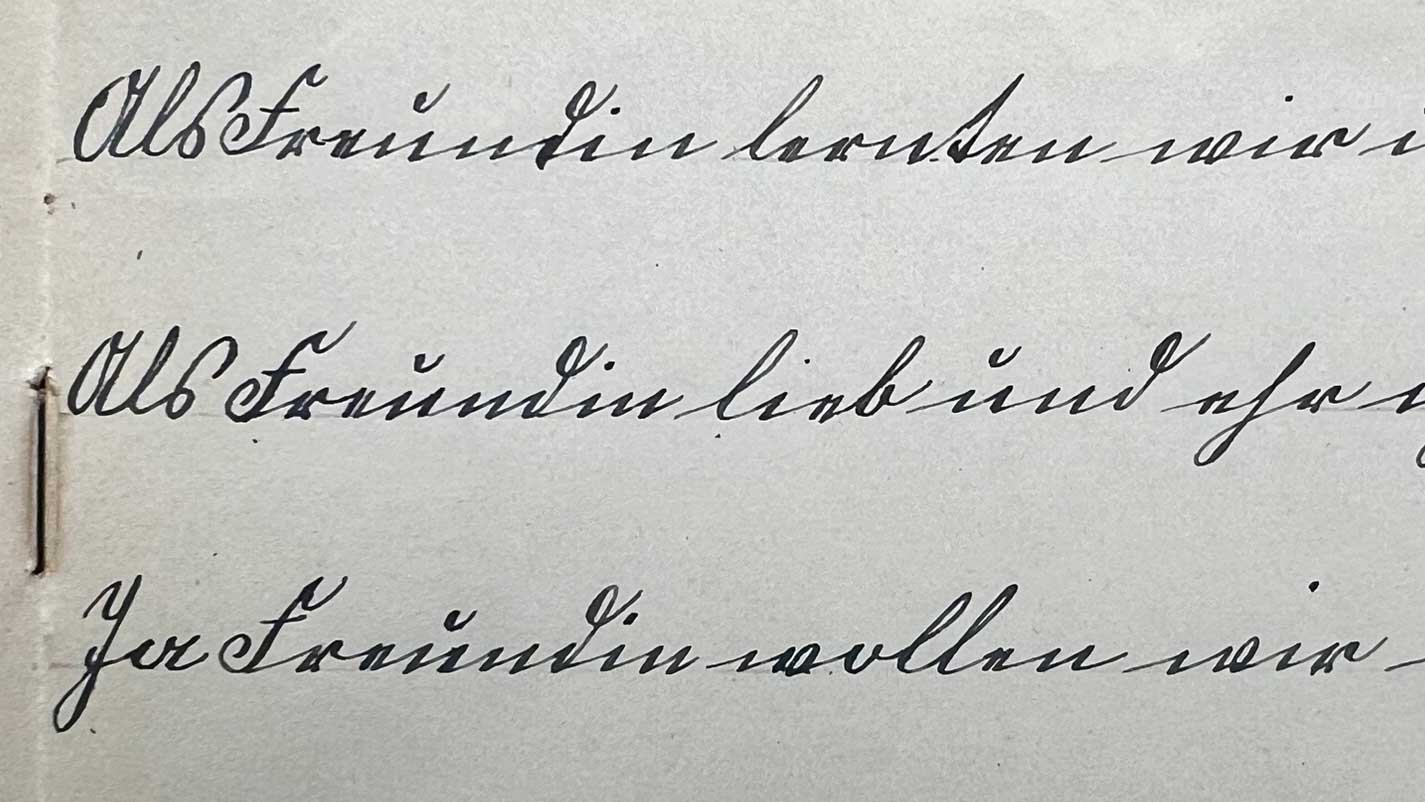 Als Freundin lernten wir
Als Freundin lieb und ehr
Ja Freundin wollen wir